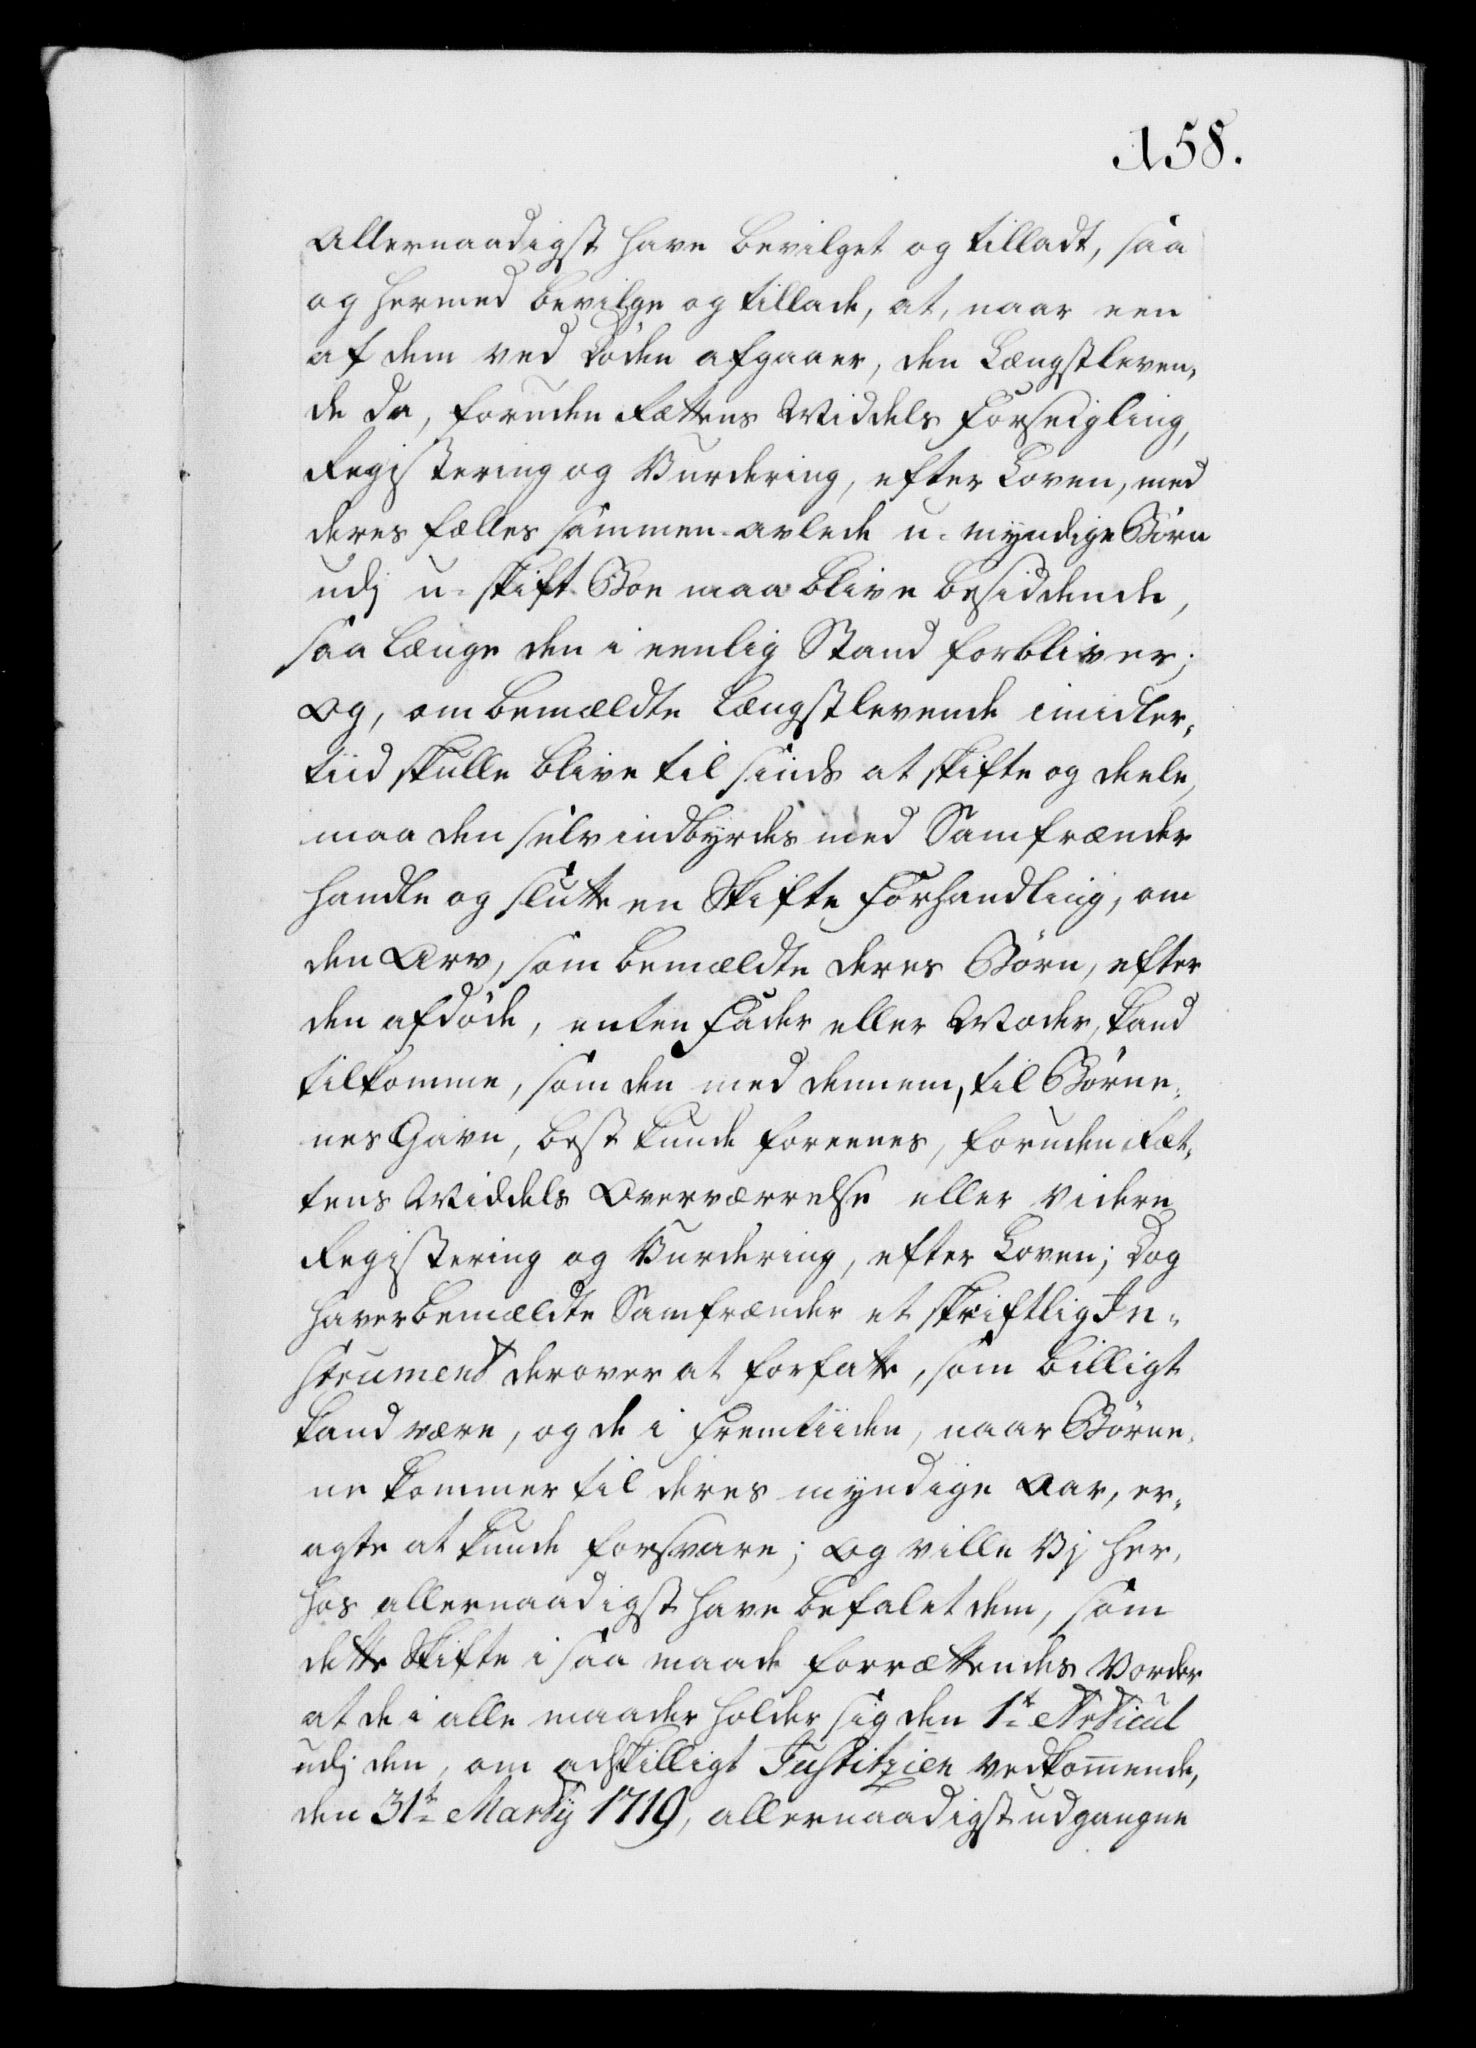 158.
Allernaadigst have bevilget og tilladt, saa
og hermed bevilge og tillade, at, naar een
af dem ved Døden afgaaer, den Længstleven-
de da, foruden Rættens Middels Forseigling,
Registering og Vurdering, efter Loven, med
deres fælles sammen-avlede u-myndige Børn
udj u-skift Boe maa blive besiddende,
saa længe den i eenlig Stand forbliver;
Og, om bemældte Længstlevende imidler-
tiid skulle blive til sinds at skifte og deele,
maa den selv indbyrdes med Samfrænder
handle og slutte en Skifte Forhandling, om
den Arv, som bemældte deres Børn, efter
den afdøde, enten Fader eller Moder, kand
tilkomme, som den med dennem, til Børne-
nes Gavn, best kunde foreenes, foruden Ræt-
tens Middels Overværrelse eller videre
Registering og Vurdering, efter Loven; Dog
haver bemældte Samfrænder et skriftlig In-
strument derover at forfatte, som billigt
kand være, og de i Fremtiiden, naar Børne-
ne kommer til deres myndige Aar, er-
agte at kunde forsvare; Og ville Vj her-
hos allernaadigst have befalet dem, som
dette Skifte i saa maade forrættendes Vorder
at de i alle maader holder sig den 1te Articul
udj den, om adskilligt Justitzien vedkom̄ende,
den 31te Martij 1719, allernaadigst udgangne